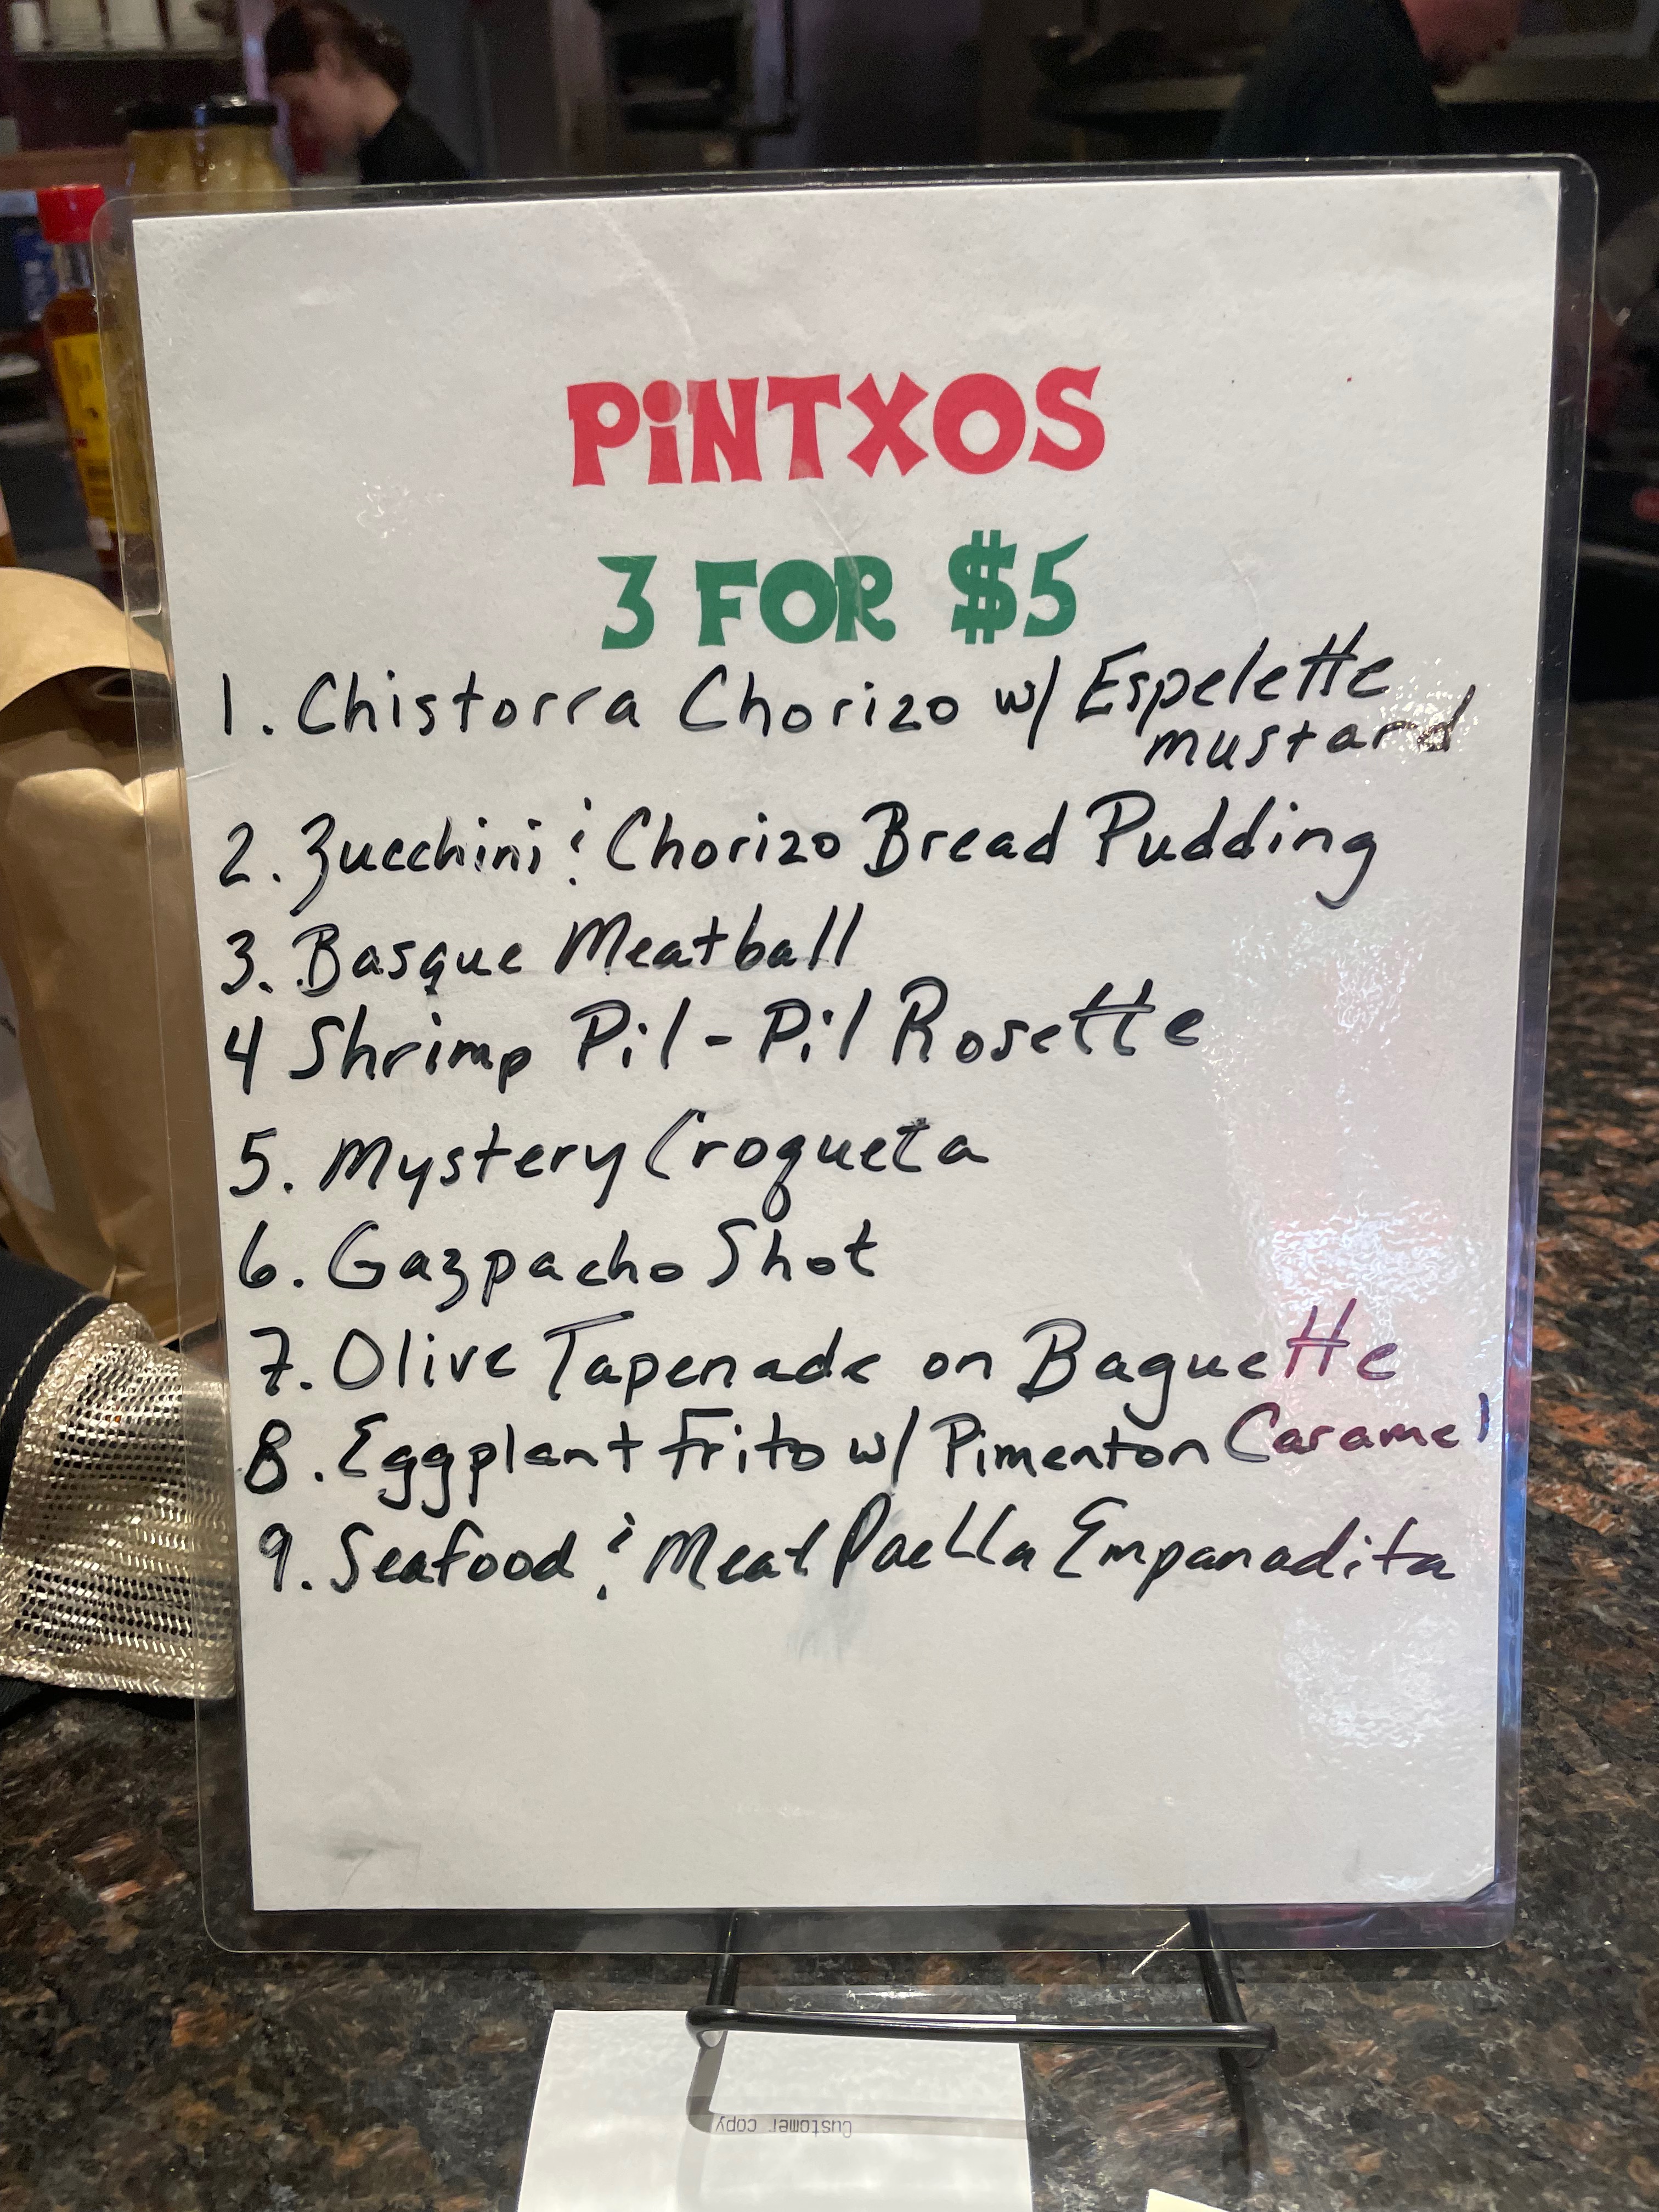 PiNTXOS
3 FOR $5
1. Chistorra Chorizo w/ Espelette
mustard
2. Zucchini & Chorizo Bread Pudding
3. Basque Meatball
4 Shrimp Pil-Pil Rosette
5. Mystery Croqueta
6. Gazpacho Shot
7. Olive Tapenade on Baguette
8. Eggplant Frito w/ Pimenton Caramel
9. Seafood & Meat Paella Empanadita
Customer copy